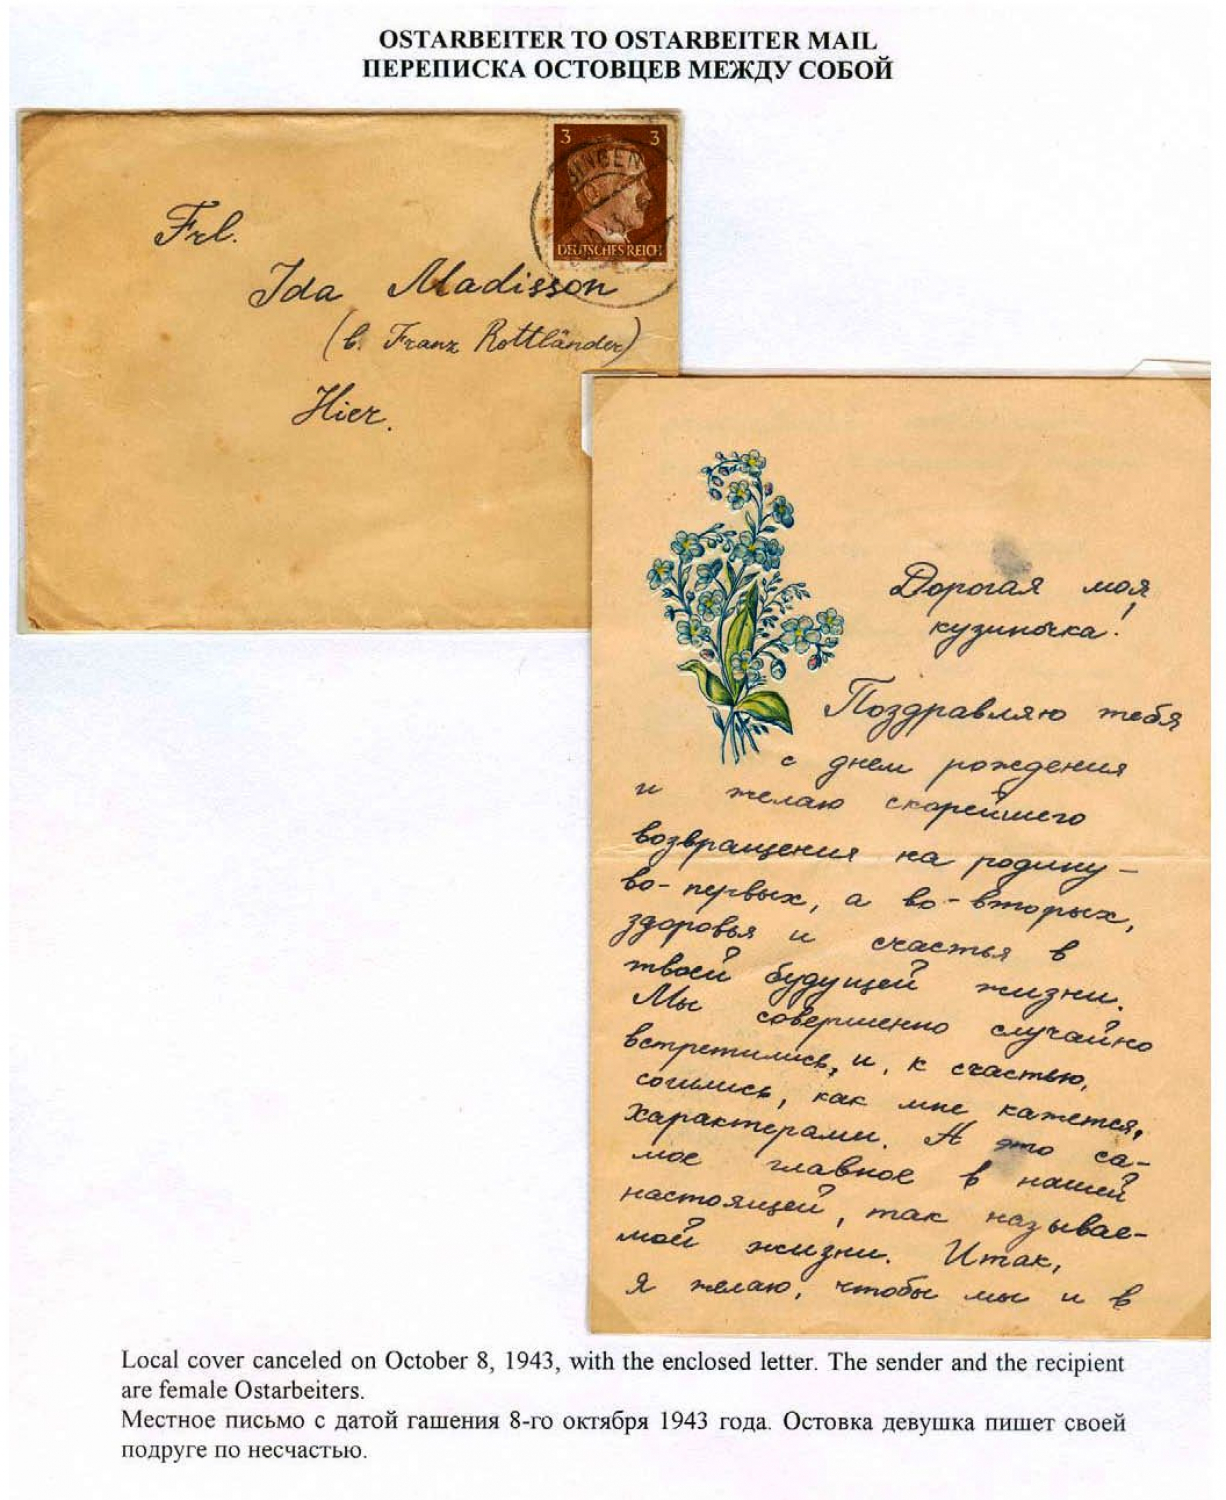 OSTARBEITER TO OSTARBEITER MAIL
ПЕРЕПИСКА ОСТОВЦЕВ МЕЖДУ СОБОЙ
3 3
DEUTSCHES REICH
Frl.
Ida Madisson
(b. Franz Rottländer)
Hier.
Дорогая моя
кузиночка!
Поздравляю тебя
с днем рождения
и желаю скорейшего
возвращения на родину –
во-первых, а во-вторых,
здоровья и счастья в
твоей будущей жизни.
Мы совершенно случайно
встретились, и, к счастью,
сошлись, как мне кажется,
характерами. А это са-
мое главное в нашей
настоящей, так называе-
мой жизни. Итак,
я желаю, чтобы мы и в
Local cover canceled on October 8, 1943, with the enclosed letter. The sender and the recipient
are female Ostarbeiters.
Местное письмо с датой гашения 8-го октября 1943 года. Остовка девушка пишет своей
подруге по несчастью.